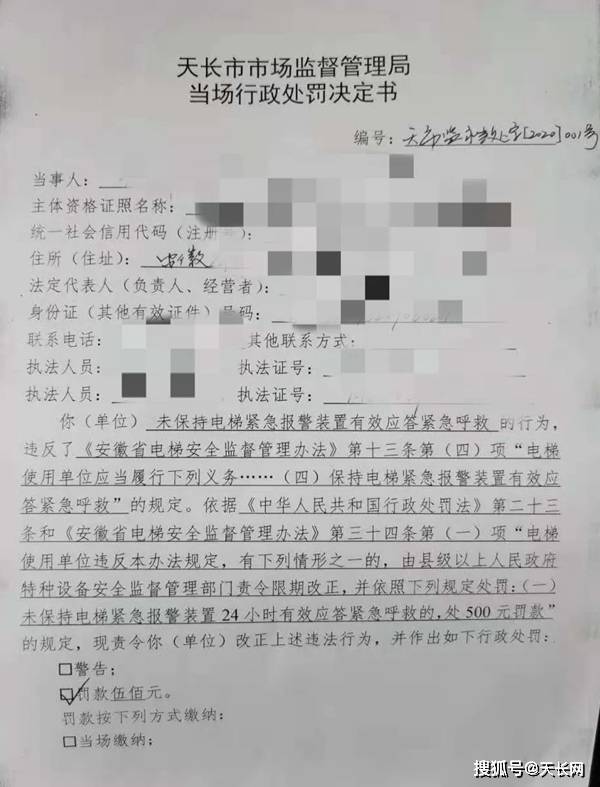 天长市市场监督管理局
当场行政处罚决定书
编号：天市监当罚[2020]001号
当事人：
主体资格证照名称：
统一社会信用代码（注册号）：
住所（住址）：
法定代表人（负责人、经营者）：
身份证（其他有效证件）号码：
联系电话： 其他联系方式：
执法人员： 执法证号：
执法人员： 执法证号：
你（单位）未保持电梯紧急报警装置有效应答紧急呼救的行为，
违反了《安徽省电梯安全监督管理办法》第十三条第（四）项“电梯
使用单位应当履行下列义务……（四）保持电梯紧急报警装置有效应
答紧急呼救”的规定。依据《中华人民共和国行政处罚法》第二十三
条和《安徽省电梯安全监督管理办法》第三十四条第（一）项“电梯
使用单位违反本办法规定，有下列情形之一的，由县级以上人民政府
特种设备安全监督管理部门责令限期改正，并依照下列规定处罚：（一）
未保持电梯紧急报警装置24小时有效应答紧急呼救的，处500元罚款”
的规定，现责令你（单位）改正上述违法行为，并作出如下行政处罚：
□警告；
☑罚款伍佰元。
罚款按下列方式缴纳：
□当场缴纳；
搜狐号@天长网